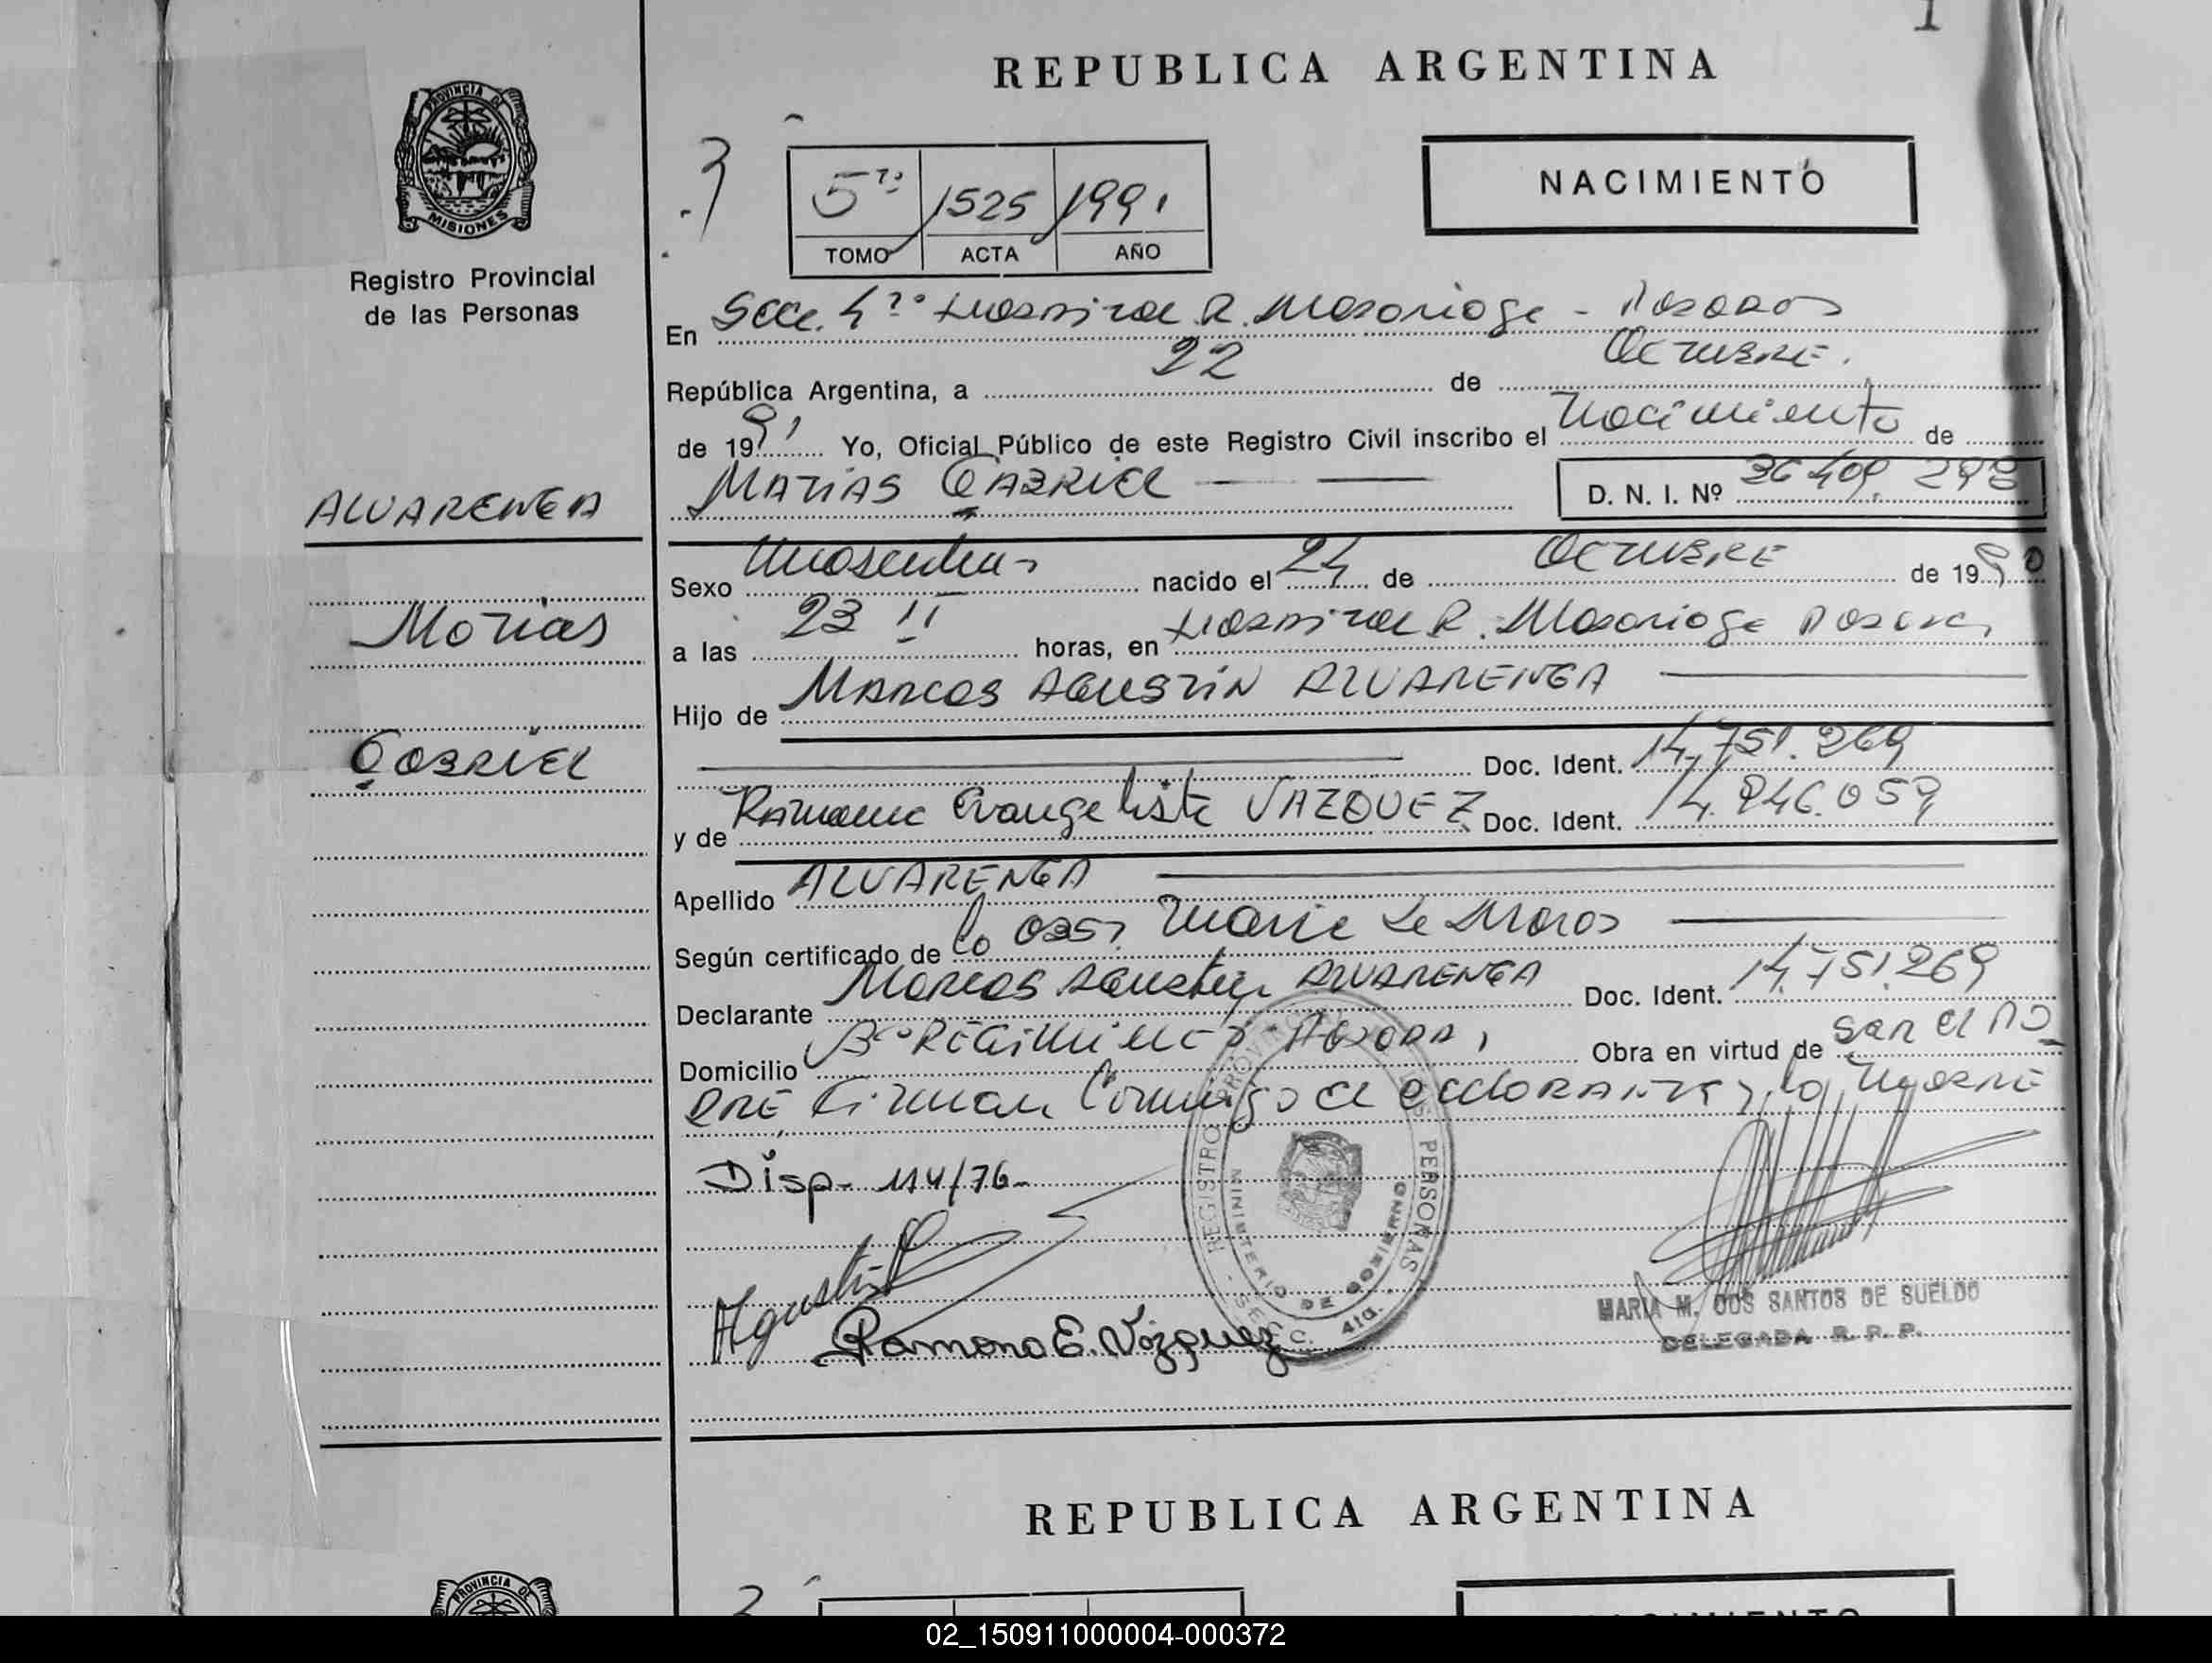 1
REPUBLICA ARGENTINA
PROVINCIA DE
MISIONES
Registro Provincial
de las Personas
5to 1525 1991
TOMO ACTA AÑO
NACIMIENTO
En Secc. 4ta Hospital R. Madariaga - Posadas
República Argentina, a 22 de Octubre.
de 1991 Yo, Oficial Público de este Registro Civil inscribo el Nacimiento de
MATIAS GABRIEL D. N. I. Nº 36.409.298
ALVARENGA
Matias
Gabriel
Sexo Masculino nacido el 24 de Octubre de 1990
a las 23 horas, en Hospital R. Madariaga Posadas
Hijo de MARCOS AGUSTIN ALVARENGA
Doc. Ident. 14.751.269
y de Ramona Evangelista VAZQUEZ Doc. Ident. 14.946.059
Apellido ALVARENGA
Según certificado de la Obst. Maria de
Declarante Marcos Agustin ALVARENGA Doc. Ident. 14.751.269
Domicilio Bo Regimiento Posadas Obra en virtud de ser el PA
DRE, Firman Conmigo el declarante y la Madre
Disp- 114/76-
Agustin
Ramona E. Vázquez
REGISTRO PROVINCIAL DE LAS PERSONAS
MINISTERIO DE GOBIERNO
- SECC. 4ta. -
MARIA M. DOS SANTOS DE SUELDO
DELEGADA R. P. P.
REPUBLICA ARGENTINA
PROVINCIA DE
NACIMIENTO
02_150911000004-000372